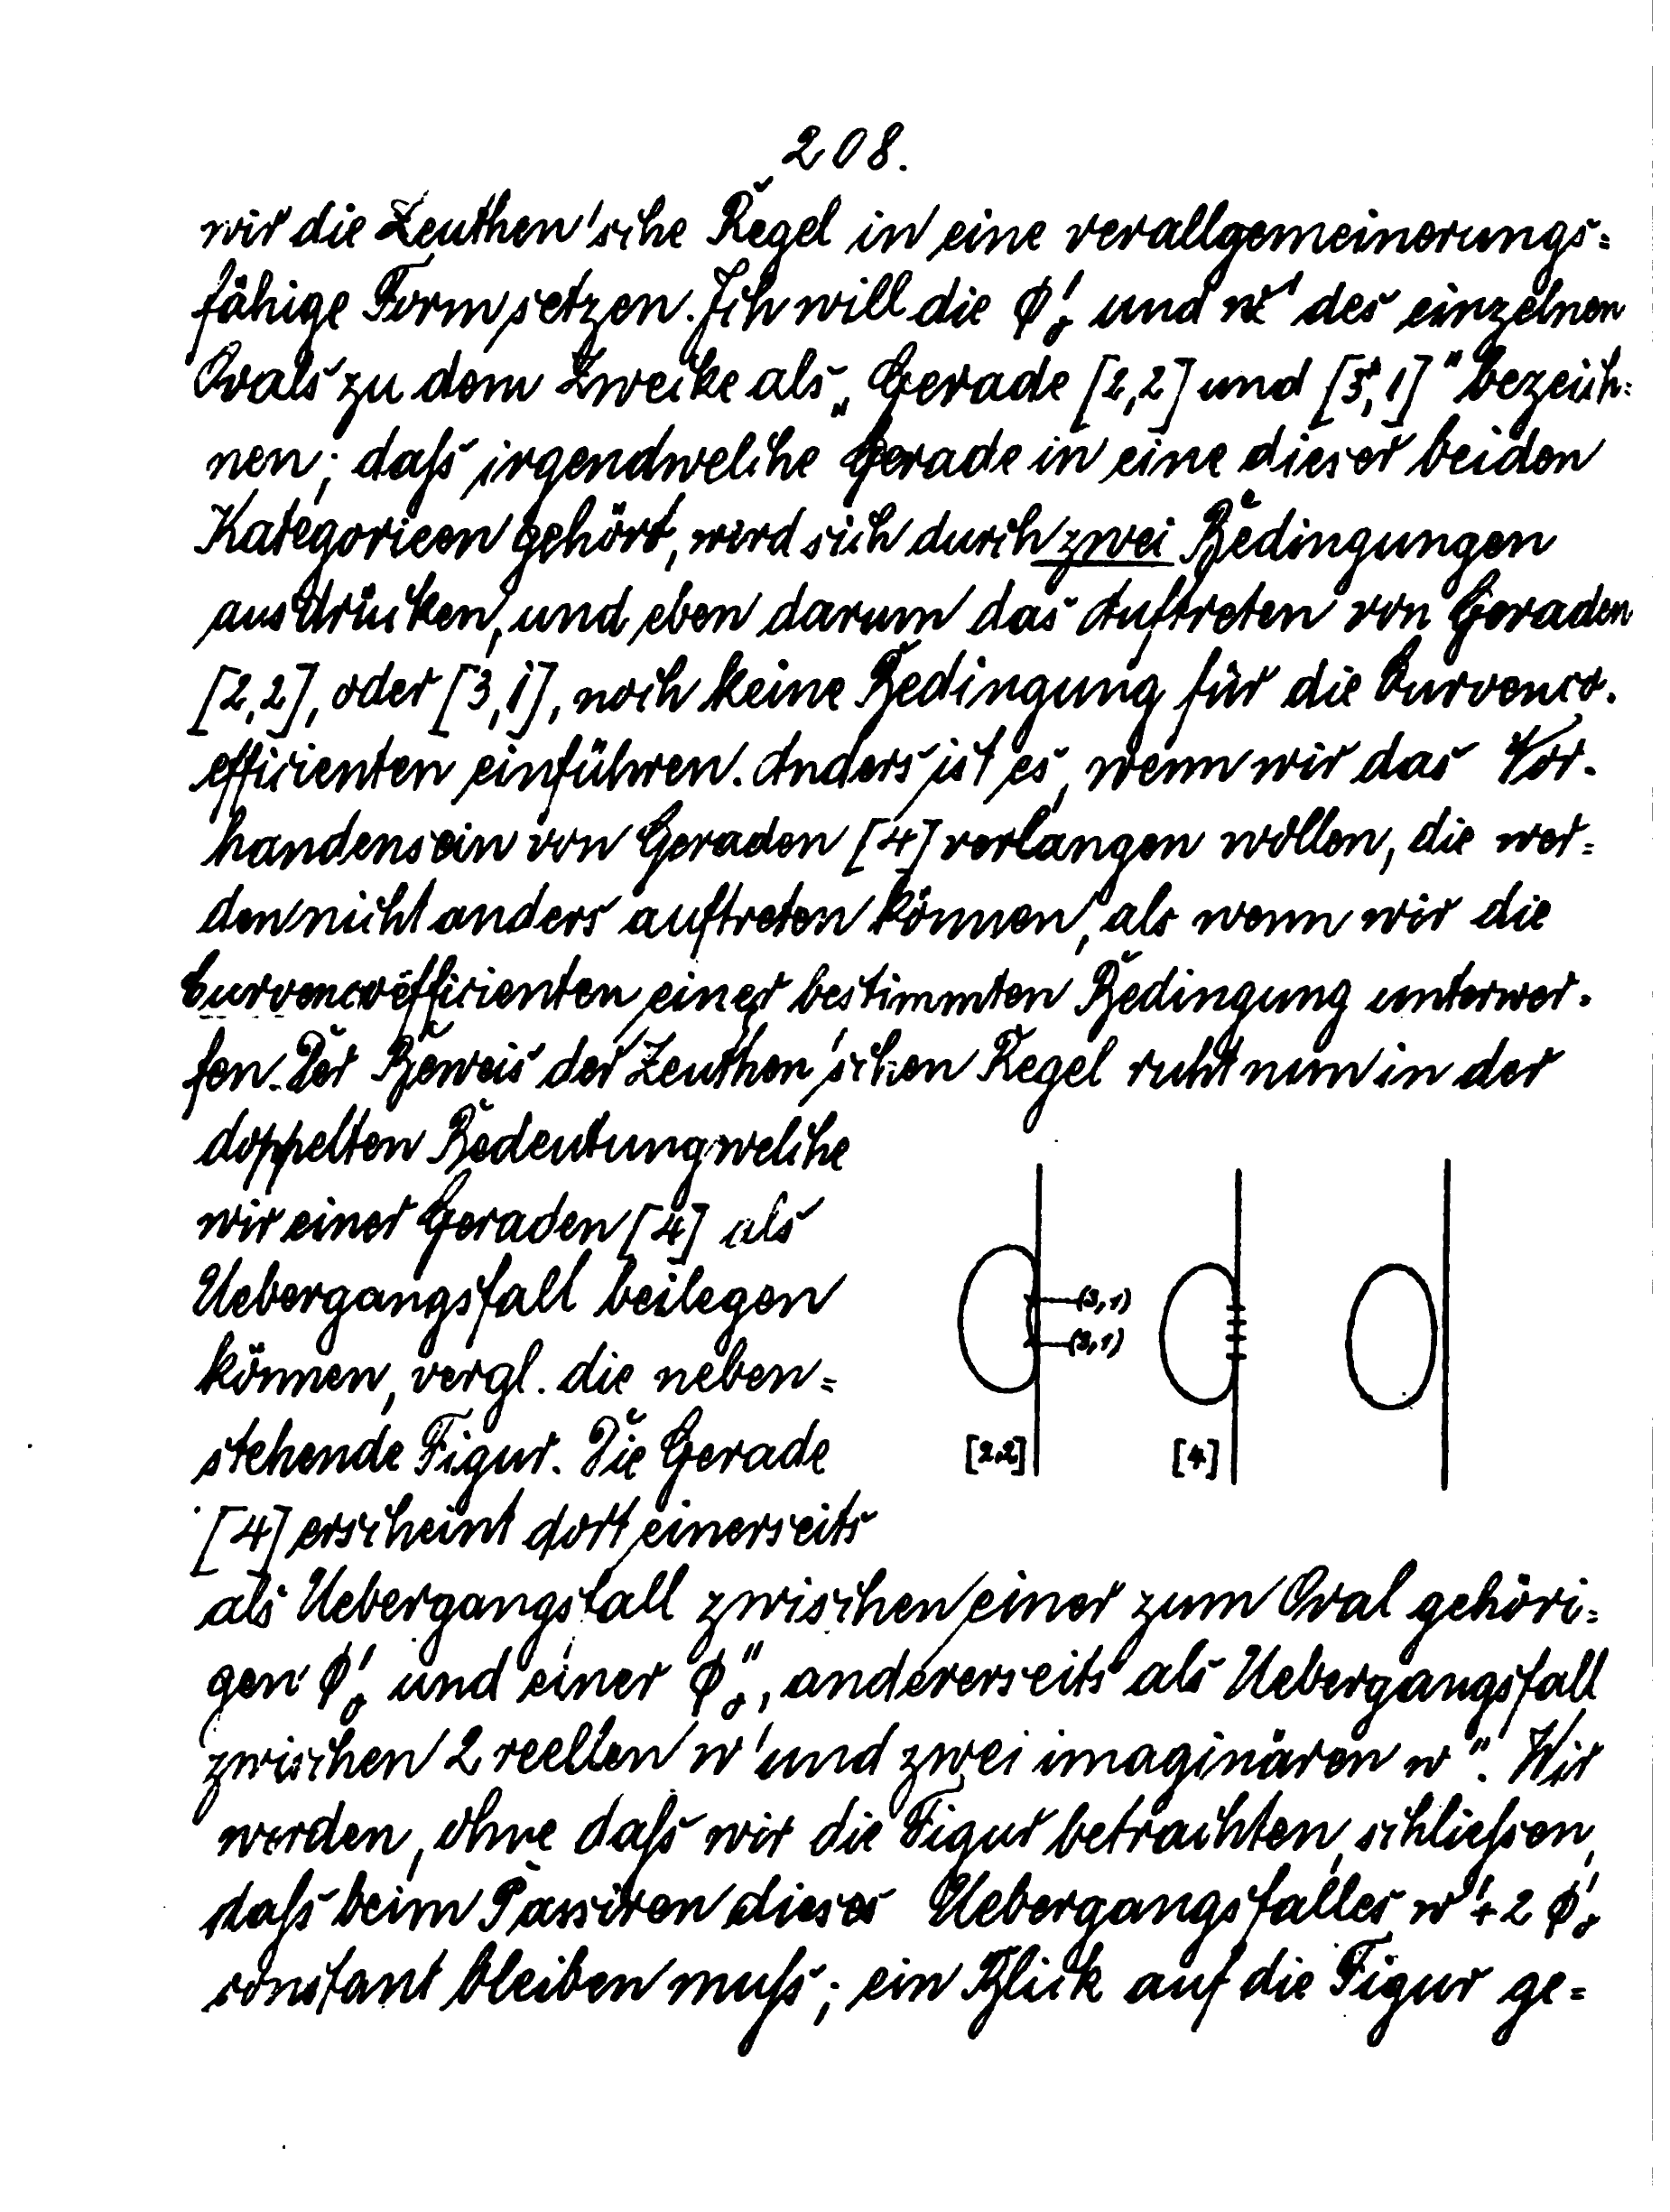 208.
wir die Zeuthen'sche Regel in eine verallgemeinerungs=
fähige Form setzen. Ich will die ϕ'₀ und w' des einzelnen
Ovals zu dem Zwecke als „Gerade [2,2] und [3,1]" bezeich=
nen; daſs irgendwelche Gerade in eine dieser beiden
Kategorieen gehört, wird sich durch zwei Bedingungen
ausdrücken, und eben darum das Auftreten von Geraden
[2,2], oder [3,1], noch keine Bedingung für die Curvenco-
efficienten einführen. Anders ist es, wenn wir das Vor-
handensein von Geraden [4] verlangen wollen, die wer=
den nicht anders auftreten können, als wenn wir die
Curvencoëfficienten einer bestimmten Bedingung unterwer-
fen. Der Beweis der Zeuthen'schen Regel ruht nun in der
doppelten Bedeutung, welche
wir einer Geraden [4] als
Uebergangsfall beilegen
können, vergl. die neben=
stehende Figur. Die Gerade
[4] erscheint dort einerseits
(3,1)
(3,1)
[2,2]
[4]
als Uebergangsfall zwischen einer zum Oval gehöri=
gen ϕ'₀ und einer ϕ"₀, andererseits als Uebergangsfall
zwischen 2 reellen w' und zwei imaginären w". Wir
werden, ohne daſs wir die Figur betrachten, schlieſsen,
daſs beim Passiren dieses Uebergangsfalles w' + 2 ϕ'₀
constant bleiben muſs; ein Blick auf die Figur ge=